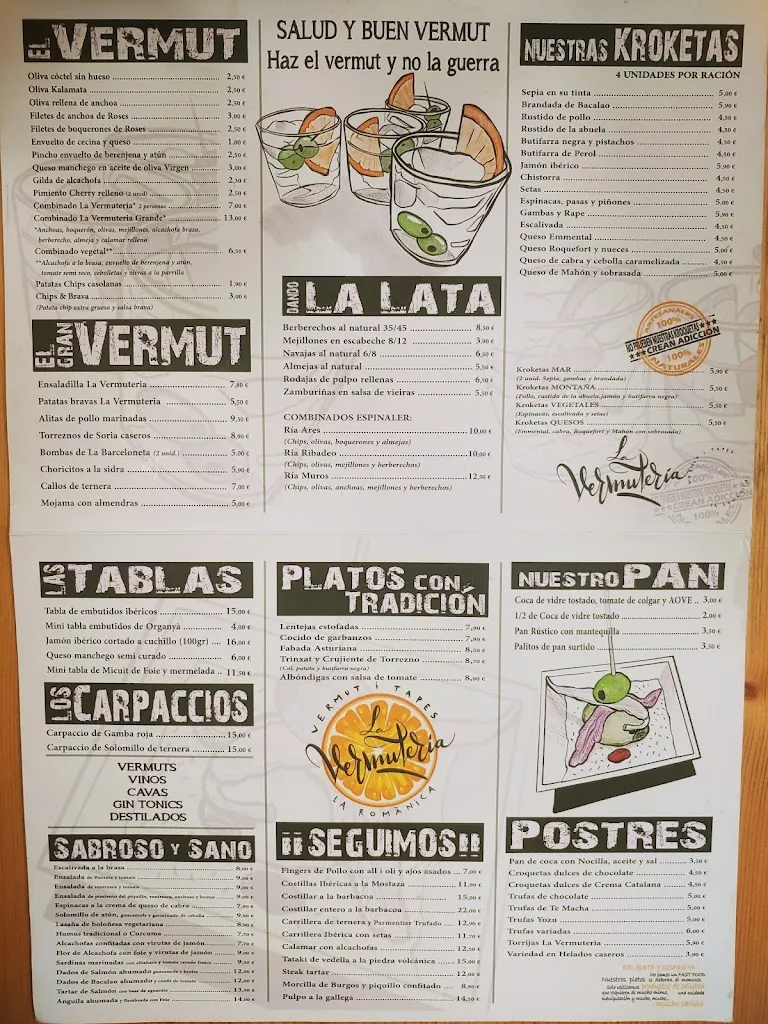 EL VERMUT
Oliva cóctel sin hueso 2,50 €
Oliva Kalamata 2,50 €
Oliva rellena de anchoa 2,50 €
Filetes de anchoa de Roses 3,00 €
Filetes de boquerones de Roses 2,50 €
Envuelto de cecina y queso 1,00 €
Pincho envuelto de berenjena y atún 2,50 €
Queso manchego en aceite de oliva Virgen 3,00 €
Gilda de alcachofa 2,50 €
Pimiento Cherry relleno (2 unid) 2,50 €
Combinado La Vermuteria* 2 personas 7,00 €
Combinado La Vermuteria Grande* 13,00 €
*Anchoas, boquerón, olivas, mejillones, alcachofa brasa,
berberecho, almeja y calamar relleno
Combinado vegetal** 6,50 €
**Alcachofa a la brasa, envuelto de berenjena y atún,
tomate semi seco, cebolletas y olivas a la parrilla
Patatas Chips casolanas 1,90 €
Chips & Brava 3,00 €
(Patata chip extra gruesa y salsa brava)
EL GRAN VERMUT
Ensaladilla La Vermuteria 7,80 €
Patatas bravas La Vermuteria 5,50 €
Alitas de pollo marinadas 9,30 €
Torreznos de Soria caseros 8,90 €
Bombas de La Barceloneta (2 unid.) 5,00 €
Choricitos a la sidra 5,90 €
Callos de ternera 7,00 €
Mojama con almendras 5,00 €
SALUD Y BUEN VERMUT
Haz el vermut y no la guerra
DANDO LA LATA
Berberechos al natural 35/45 8,50 €
Mejillones en escabeche 8/12 3,90 €
Navajas al natural 6/8 6,50 €
Almejas al natural 5,50 €
Rodajas de pulpo rellenas 6,50 €
Zamburiñas en salsa de vieiras 5,50 €
COMBINADOS ESPINALER:
Ría Ares 10,00 €
(Chips, olivas, boquerones y almejas)
Ría Ribadeo 10,00 €
(Chips, olivas, mejillones y berberechos)
Ría Muros 12,50 €
(Chips, olivas, anchoas, mejillones y berberechos)
NUESTRAS KROKETAS
4 UNIDADES POR RACIÓN
Sepia en su tinta 5,00 €
Brandada de Bacalao 5,90 €
Rustido de pollo 4,50 €
Rustido de la abuela 4,50 €
Butifarra negra y pistachos 4,50 €
Butifarra de Perol 4,50 €
Jamón ibérico 5,90 €
Chistorra 4,50 €
Setas 4,50 €
Espinacas, pasas y piñones 5,00 €
Gambas y Rape 5,90 €
Escalivada 4,50 €
Queso Emmental 4,50 €
Queso Roquefort y nueces 5,00 €
Queso de cabra y cebolla caramelizada 4,50 €
Queso de Mahón y sobrasada 5,00 €
ARTESANALES
100%
NO PRUEBEN NUESTRAS KROQUETAS
CREAN ADICCIÓN
100%
NATURALES
Kroketas MAR 5,90 €
(2 unid. Sepia, gambas y brandada)
Kroketas MONTAÑA 5,50 €
(Pollo, rustido de la abuela, jamón y butifarra negra)
Kroketas VEGETALES 5,50 €
(Espinacas, escalivada y setas)
Kroketas QUESOS 5,50 €
(Emmental, cabra, Roquefort y Mahón con sobrasada)
La Vermuteria
CREAN ADICCIÓN
100%
LAS TABLAS
Tabla de embutidos ibéricos 15,00 €
Mini tabla embutidos de Organyà 4,00 €
Jamón ibérico cortado a cuchillo (100gr) 16,00 €
Queso manchego semi curado 6,00 €
Mini tabla de Micuit de Foie y mermelada 11,50 €
LOS CARPACCIOS
Carpaccio de Gamba roja 15,00 €
Carpaccio de Solomillo de ternera 15,00 €
VERMUTS
VINOS
CAVAS
GIN TONICS
DESTILADOS
SABROSO Y SANO
Escalivada a la brasa 8,00 €
Ensalada de Burrata y tomate 9,00 €
Ensalada de ventresca y tomate 9,00 €
Ensalada de pimiento del piquillo, ventresca, anchoas y huevo 9,00 €
Espinacas a la crema de queso de cabra 7,00 €
Solomillo de atún, guacamole y germinado de cebolla 9,90 €
Lasaña de boloñesa vegetariana 8,90 €
Humus tradicional o Curcuma 7,70 €
Alcachofas confitadas con virutas de jamón 7,70 €
Flor de Alcachofa con foie y virutas de jamón 9,00 €
Sardinas marinadas con
Dados de Salmón ahumado 12,00 €
Dados de Bacalao ahumado y confit de tomate 12,00 €
Tartar de Salmón con base de aguacate 13,50 €
Anguila ahumada y flambeada con Foie 14,00 €
PLATOS CON TRADICIÓN
Lentejas estofadas 7,90 €
Cocido de garbanzos 7,90 €
Fabada Asturiana 8,50 €
Trinxat y Crujiente de Torrezno 8,70 €
(Col, patata y butifarra negra)
Albóndigas con salsa de tomate 8,90 €
VERMUT I TAPES
La Vermuteria
LA ROMÀNICA
¡¡SEGUIMOS!!
Fingers de Pollo con all i oli y ajos asados 7,00 €
Costillas Ibéricas a la Mostaza 11,90 €
Costillar a la barbacoa 15,00 €
Costillar entero a la barbacoa 22,00 €
Carrillera de ternera y Parmentier Trufado 12,90 €
Carrillera Ibérica con setas 11,70 €
Calamar con alcachofas 12,50 €
Tataki de vedella a la piedra volcánica 15,00 €
Steak tartar 12,00 €
Morcilla de Burgos y piquillo confitado 8,90 €
Pulpo a la gallega 14,50 €
NUESTRO PAN
Coca de vidre tostado, tomate de colgar y AOVE 3,00 €
1/2 de Coca de vidre tostado 2,00 €
Pan Rústico con mantequilla 3,50 €
Palitos de pan surtido 3,50 €
POSTRES
Pan de coca con Nocilla, aceite y sal 3,50 €
Croquetas dulces de chocolate 4,50 €
Croquetas dulces de Crema Catalana 4,50 €
Trufas de chocolate 5,00 €
Trufas de Te Macha 5,00 €
Trufas Yozu 5,00 €
Trufas variadas 6,00 €
Torrijas La Vermuteria 5,90 €
Variedad en Helados caseros 3,90 €
RELÁJATE Y DISFRUTA
No somos un FAST FOOD.
Nuestros platos se elaboran al momento.
Solo utilizamos productos de calidad
que requieren de mucho mimo, una cuidada
manipulación y mucho, mucho...
mucho cariño